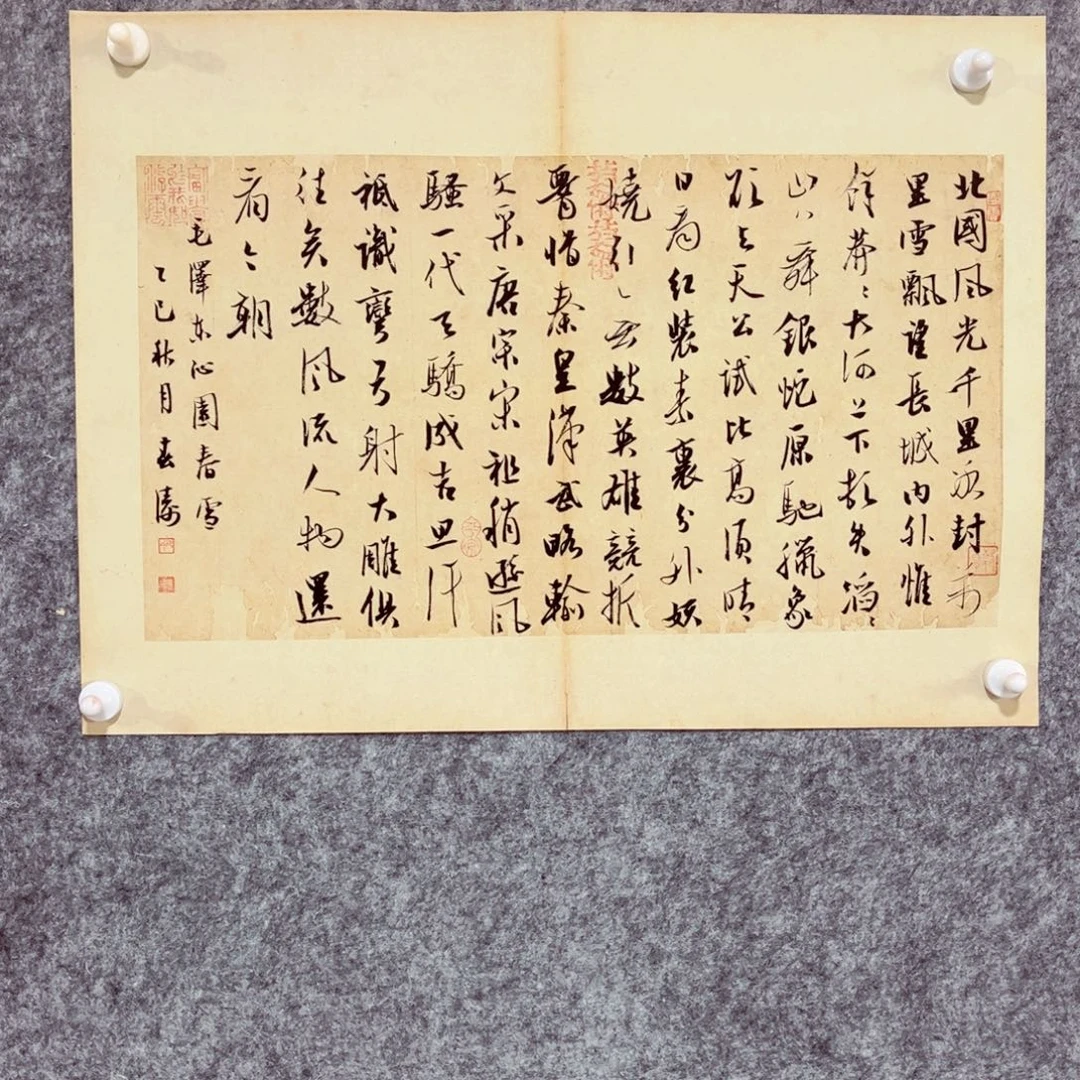 北國風光千里冰封万
里雪飄望長城內外惟
餘莽〻大河上下頓失滔〻
山舞銀蛇原馳臘象
欲与天公試比高須晴
日看紅裝素裹分外妖
嬈引〻無數英雄競折
惜秦皇漢武略輸
文采唐宗宋祖稍遜風
騷一代天驕成吉思汗
祇識彎弓射大雕俱
往矣數風流人物還
看今朝
毛澤东沁園春雪
乙巳秋月春濤